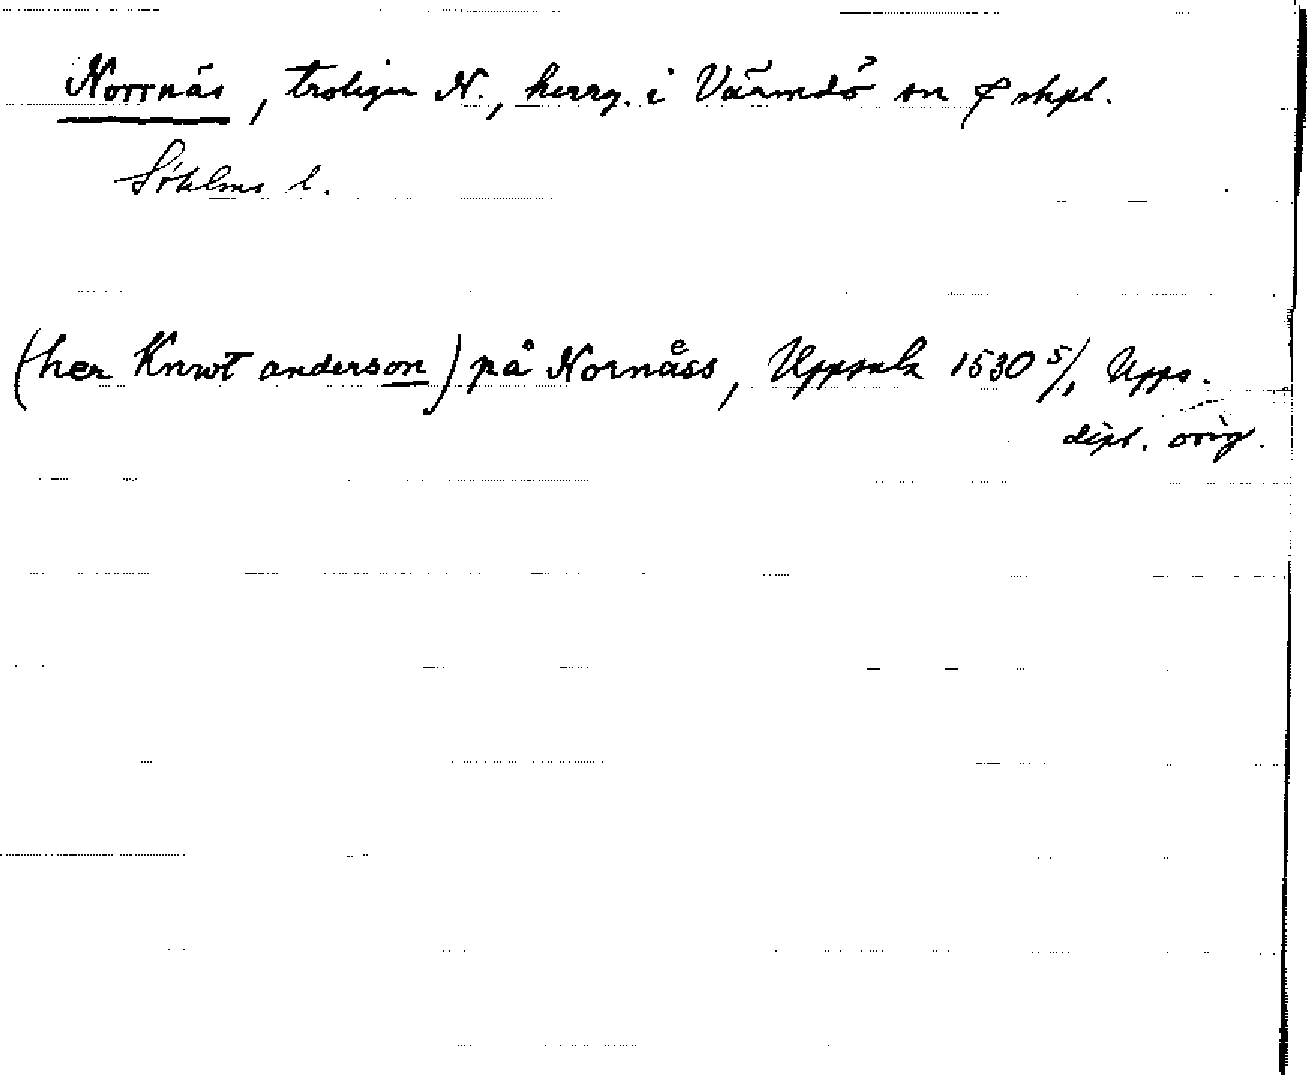 Norrnäs, troligen N., herrg. i Värmdö sn & skpl.
Sthlms l.
(her Knwt anderson) på Nornåss, Uppsala 1530 5/1 Upps.
dipl. orig.